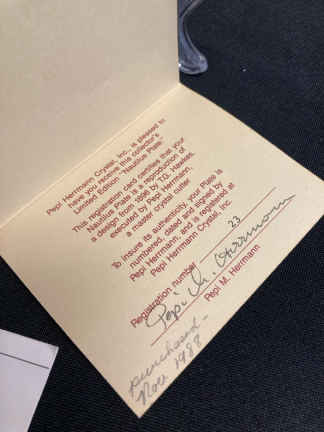 Pepi Herrmann Crystal, Inc., is pleased to
have you receive this collector's
Limited Edition "Nautilus Plate."
This registration card certifies that your
Nautilus Plate is a reproduction of
a design from 1896 by T.G. Hawkes,
executed by Pepi Herrmann,
a master crystal cutter.
To insure its authenticity, your Plate is
numbered, dated and signed by
Pepi Herrmann, and is registered at
Pepi Herrmann Crystal, Inc.
Registration number 23
Pepi M. Herrmann
Pepi M. Herrmann
purchased -
Nov 1988